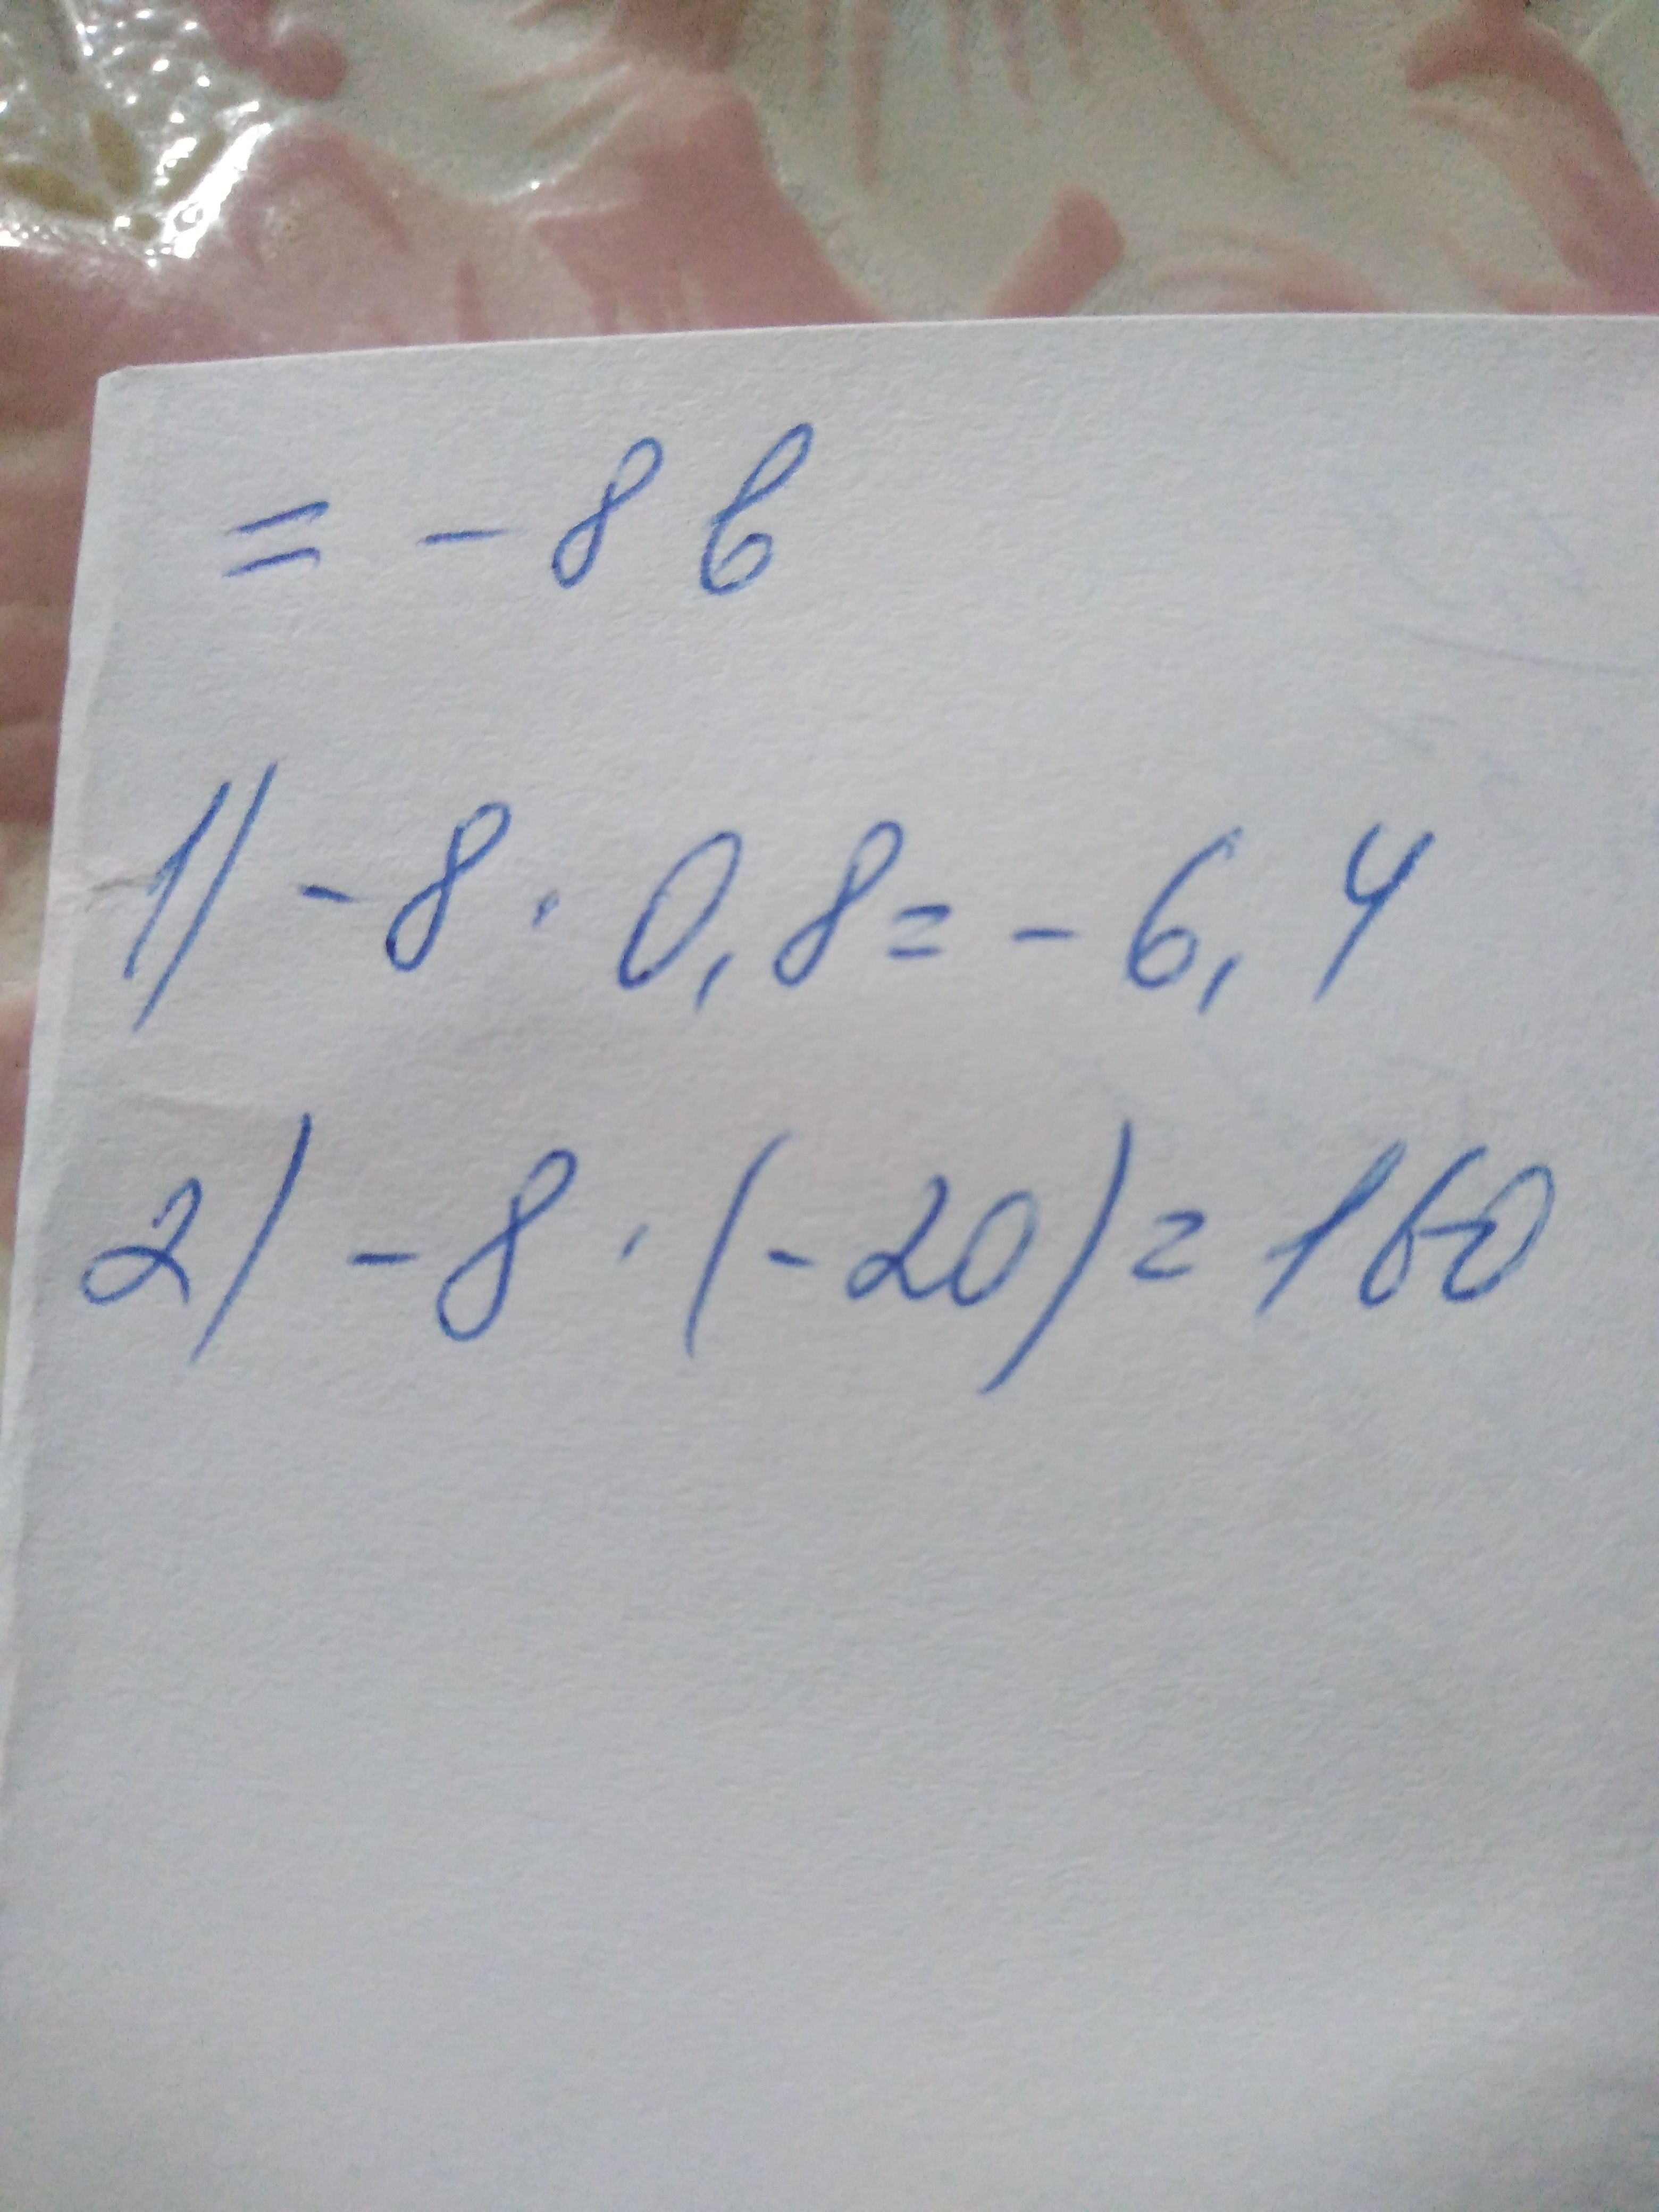 = - 8 в
1) - 8 · 0,8 = - 6,4
2) - 8 · (- 20) = 160